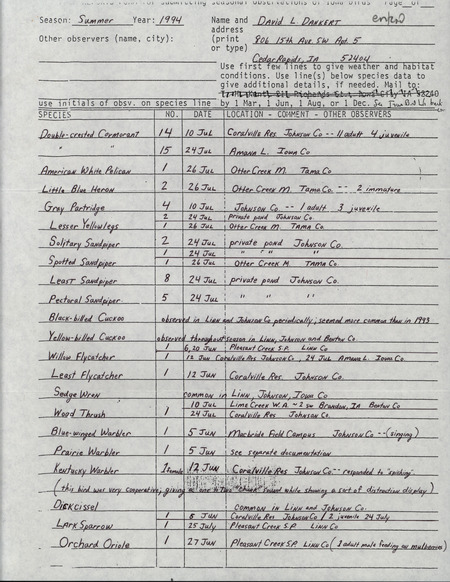 for submitting seasonal observations of Iowa birds Page of
Season: Summer Year: 1994 Name and DAVID L. DANKERT entered
Other observers (name, city): address
(print 806 15th Ave SW Apt. 5
or type)
Cedar Rapids, IA 52404
Use first few lines to give weather and habitat
conditions. Use line(s) below species data to
give additional details, if needed. Mail to:
use initials of obsv. on species line by 1 Mar, 1 Jun, 1 Aug, or 1 Dec. See Iowa Bird Life back
SPECIES NO. DATE LOCATION - COMMENT - OTHER OBSERVERS
Double-crested Cormorant 14 10 Jul Coralville Res Johnson Co -- 11 adult 4 juvenile
" " 15 24 Jul Amana L. Iowa Co
American White Pelican 1 26 Jul Otter Creek M. Tama Co
Little Blue Heron 2 26 Jul Otter Creek M. Tama Co. -- 2 immature
Gray Partridge 4 10 Jul Johnson Co -- 1 adult 3 juvenile
2 24 Jul private pond Johnson Co
Lesser Yellowlegs 1 26 Jul Otter Creek M. Tama Co.
Solitary Sandpiper 2 24 Jul private pond Johnson Co.
1 24 Jul " " " "
Spotted Sandpiper 1 26 Jul Otter Creek M Tama Co.
Least Sandpiper 8 24 Jul private pond Johnson Co.
Pectoral Sandpiper 5 24 Jul " " "
Black-billed Cuckoo observed in Linn and Johnson Co periodically, seemed more common than in 1993
Yellow-billed Cuckoo observed throughout season in Linn, Johnson and Benton Co
1 6,20 Jun Pleasant Creek S.P. Linn Co
Willow Flycatcher 1 12 Jun Coralville Res Johnson Co, 24 Jul Amana L. Iowa Co.
Least Flycatcher 1 12 Jun Coralville Res Johnson Co.
Sedge Wren common in Linn, Johnson, Iowa Co
10 Jul Lime Creek W.A. ~2 sw Brandon, IA Benton Co
Wood Thrush 1 24 Jul Coralville Res Johnson Co.
Blue-winged Warbler 1 5 Jun Macbride Field Campus Johnson Co -- (singing)
Prairie Warbler 1 5 Jun See separate documentation
Kentucky Warbler 1 female 12 Jun Coralville Res Johnson Co -- responded to "pishing"
(this bird was very cooperative, giving a low note "chuck" sound while showing a sort of distraction display)
Dickcissel common in Linn and Johnson Co.
1 5 Jun Coralville Res Johnson Co / 2 juvenile 24 July
Lark Sparrow 1 25 July Pleasant Creek S.P. Linn Co
Orchard Oriole 1 27 Jun Pleasant Creek S.P. Linn Co (1 adult male feeding on mulberries)